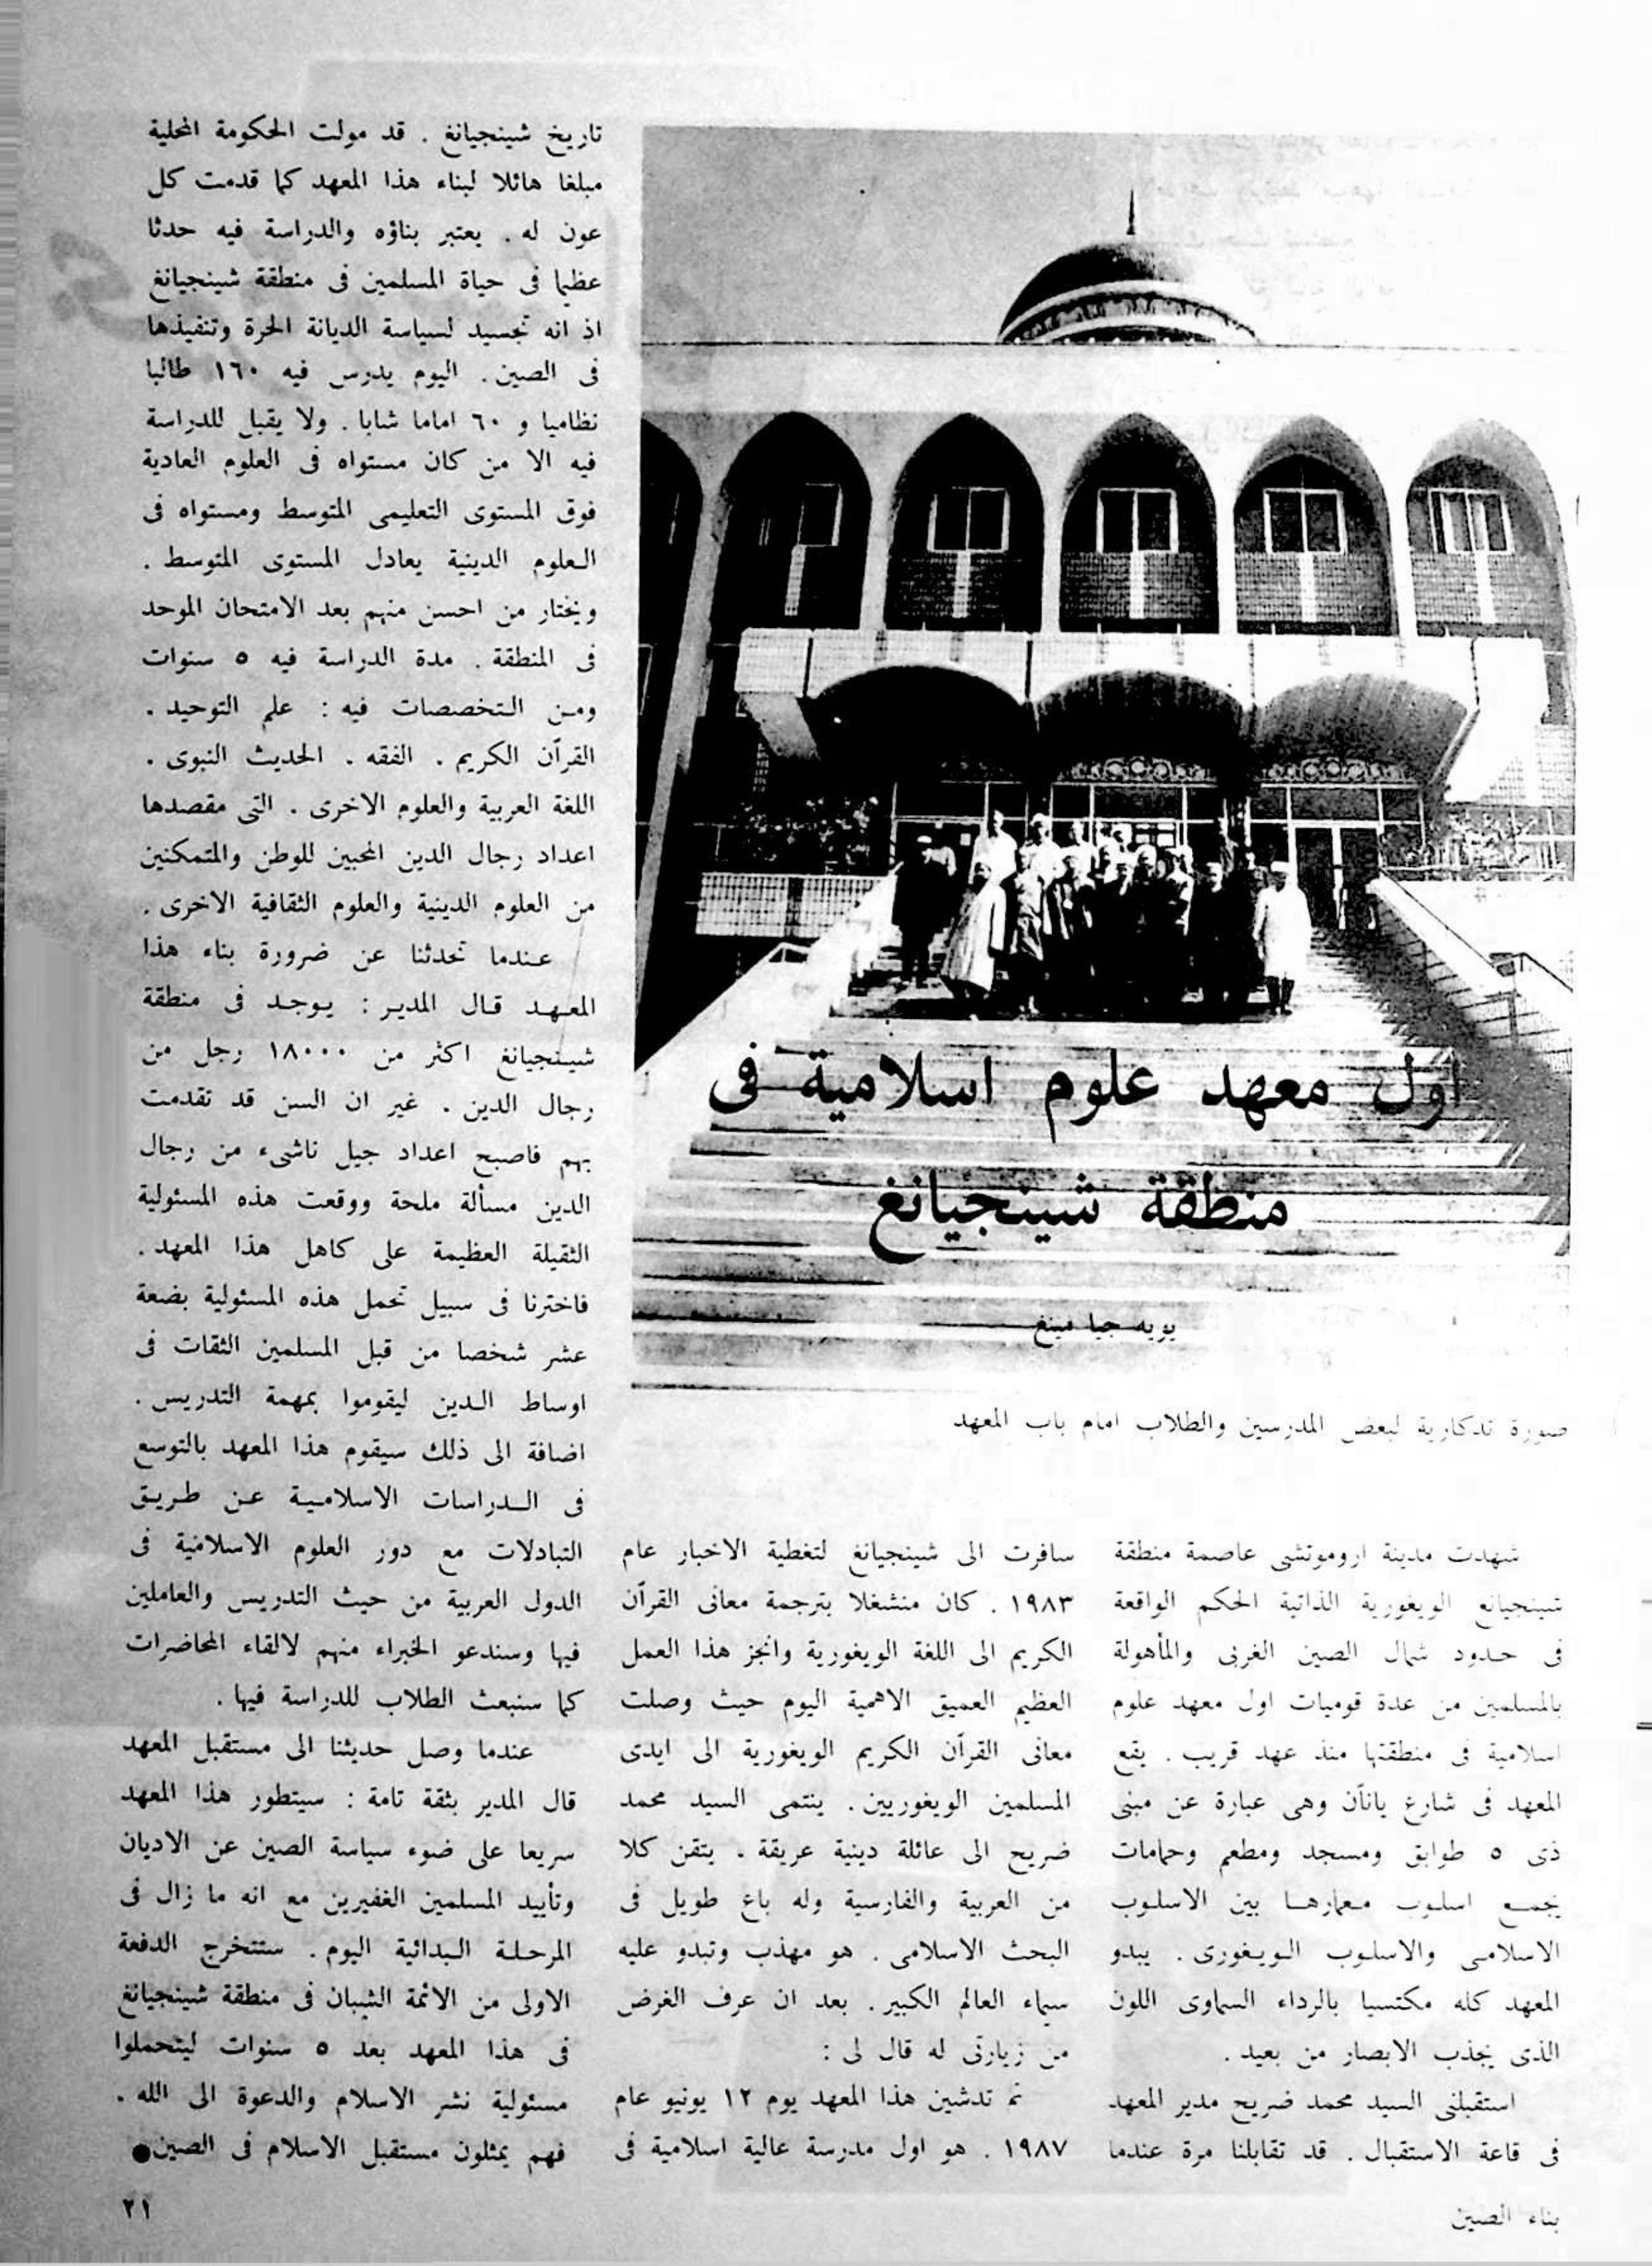 اول معهد علوم اسلامية فى
منطقة شينجيانغ
يويه جيا مينغ
صورة تذكارية لبعض المدرسين والطلاب امام باب المعهد
شهدت مدينة اروموتشى عاصمة منطقة
شينجيانغ الويغورية الذاتية الحكم الواقعة
فى حدود شمال الصين الغربى والمأهولة
بالمسلمين من عدة قوميات اول معهد علوم
اسلامية فى منطقتها منذ عهد قريب . يقع
المعهد فى شارع يانآن وهى عبارة عن مبنى
ذى ٥ طوابق ومسجد ومطعم وحمامات
يجمع اسلوب معمارها بين الاسلوب
الاسلامى والاسلوب الويغورى . يبدو
المعهد كله مكتسيا بالرداء السماوى اللون
الذى يجذب الابصار من بعيد .
استقبلنى السيد محمد ضريح مدير المعهد
فى قاعة الاستقبال . قد تقابلنا مرة عندما
سافرت الى شينجيانغ لتغطية الاخبار عام
١٩٨٣ . كان منشغلا بترجمة معانى القرآن
الكريم الى اللغة الويغورية وانجز هذا العمل
العظيم العميق الاهمية اليوم حيث وصلت
معانى القرآن الكريم الويغورية الى ايدى
المسلمين الويغوريين . ينتمى السيد محمد
ضريح الى عائلة دينية عريقة . يتقن كلا
من العربية والفارسية وله باع طويل فى
البحث الاسلامى . هو مهذب وتبدو عليه
سيماء العالم الكبير . بعد ان عرف الغرض
من زيارتى له قال لى :
تم تدشين هذا المعهد يوم ١٢ يونيو عام
١٩٨٧ . هو اول مدرسة عالية اسلامية فى
تاريخ شينجيانغ . قد مولت الحكومة المحلية
مبلغا هائلا لبناء هذا المعهد كما قدمت كل
عون له . يعتبر بناؤه والدراسة فيه حدثا
عظيما فى حياة المسلمين فى منطقة شينجيانغ
اذ انه تجسيد لسياسة الديانة الحرة وتنفيذها
فى الصين . اليوم يدرس فيه ١٦٠ طالبا
نظاميا و ٦٠ اماما شابا . ولا يقبل للدراسة
فيه الا من كان مستواه فى العلوم العادية
فوق المستوى التعليمى المتوسط ومستواه فى
العلوم الدينية يعادل المستوى المتوسط .
ويختار من احسن منهم بعد الامتحان الموحد
فى المنطقة . مدة الدراسة فيه ٥ سنوات
ومن التخصصات فيه : علم التوحيد .
القرآن الكريم . الفقه . الحديث النبوى .
اللغة العربية والعلوم الاخرى . التى مقصدها
اعداد رجال الدين المحبين للوطن والمتمكنين
من العلوم الدينية والعلوم الثقافية الاخرى .
عندما تحدثنا عن ضرورة بناء هذا
المعهد قال المدير : يوجد فى منطقة
شينجيانغ اكثر من ١٨٠٠٠ رجل من
رجال الدين . غير ان السن قد تقدمت
بهم فاصبح اعداد جيل ناشىء من رجال
الدين مسألة ملحة ووقعت هذه المسئولية
الثقيلة العظيمة على كاهل هذا المعهد .
فاخترنا فى سبيل تحمل هذه المسئولية بضعة
عشر شخصا من قبل المسلمين الثقات فى
اوساط الدين ليقوموا بمهمة التدريس .
اضافة الى ذلك سيقوم هذا المعهد بالتوسع
فى الدراسات الاسلامية عن طريق
التبادلات مع دور العلوم الاسلامية فى
الدول العربية من حيث التدريس والعاملين
فيها وسندعو الخبراء منهم لالقاء المحاضرات
كما سنبعث الطلاب للدراسة فيها .
عندما وصل حديثنا الى مستقبل المعهد
قال المدير بثقة تامة : سيتطور هذا المعهد
سريعا على ضوء سياسة الصين عن الاديان
وتأييد المسلمين الغفيرين مع انه ما زال فى
المرحلة البدائية اليوم . ستتخرج الدفعة
الاولى من الائمة الشبان فى منطقة شينجيانغ
فى هذا المعهد بعد ٥ سنوات ليتحملوا
مسئولية نشر الاسلام والدعوة الى الله .
فهم يمثلون مستقبل الاسلام فى الصين●
بناء الصين
٢١